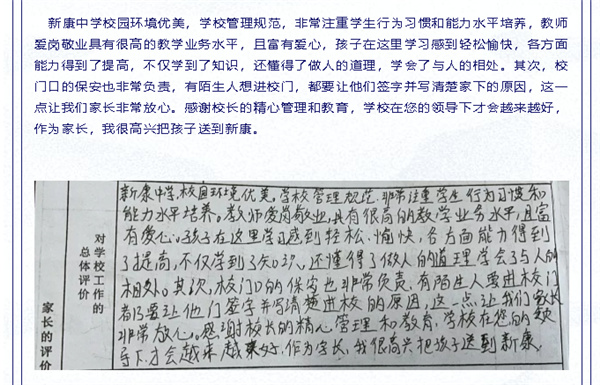 新康中学校园环境优美，学校管理规范，非常注重学生行为习惯和能力水平培养，教师
爱岗敬业具有很高的教学业务水平，且富有爱心，孩子在这里学习感到轻松愉快，各方面
能力得到了提高，不仅学到了知识，还懂得了做人的道理，学会了与人的相处。其次，校
门口的保安也非常负责，有陌生人想进校门，都要让他们签字并写清楚家下的原因，这一
点让我们家长非常放心。感谢校长的精心管理和教育，学校在您的领导下才会越来越好，
作为家长，我很高兴把孩子送到新康。
对学校工作的
总体评价
家长的评价
新康中学,校园环境优美,学校管理规范.非常注重学生行为习惯和
能力水平培养。教师爱岗敬业,具有很高的教学业务水平,且富
有爱心.孩子在这里学习感到轻松.愉快,各方面能力得到
了提高,不仅学到了知识,还懂得了做人的道理学会了与人的
相处。其次,校门口的保安也非常负责,有陌生人要进校门
都要让他们签字并写清楚进校的原因,这一点,让我们家长
非常放心。感谢校长的精心管理和教育,学校在您的领
导下.才会越来越来好.作为家长,我很高兴把孩子送到新康.